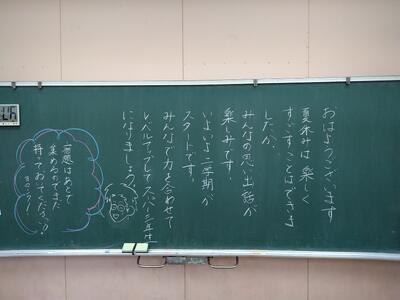 おはようございます
夏休みは楽しく
すごすことはできま
したか。
みんなの思い出話が
楽しみです。
いよいよ二学期が
スタートです。
みんなで力を合わせて
レベルアップしてスーパー三年生
になりましょう。
宿題はあとで
集めるのでまだ
持っておいてください！